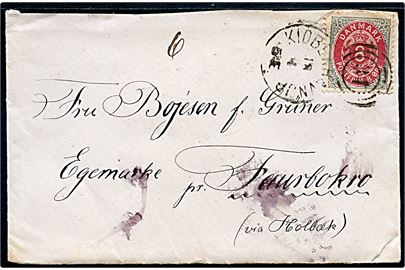 6
KIØB
DANMARK
8
Fru Bojesen f. Grüner
Egemarke pr. Faurbokro
(via Holbæk)